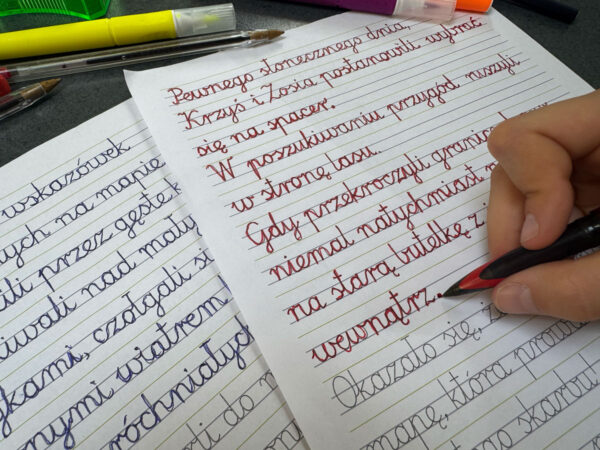 Pewnego słonecznego dnia,
Krzyś i Zosia postanowili wybrać
się na spacer.
W poszukiwaniu przygód ruszyli
w stronę lasu.
Gdy przekroczyli
niemal natychmiast
na starą butelkę z
wewnątrz.
Okazało się,
która
skarbu
wskazówek
nych na mapie
ili przez gęste
nad
czołgali
nymi wiatrem
róchniałych
do